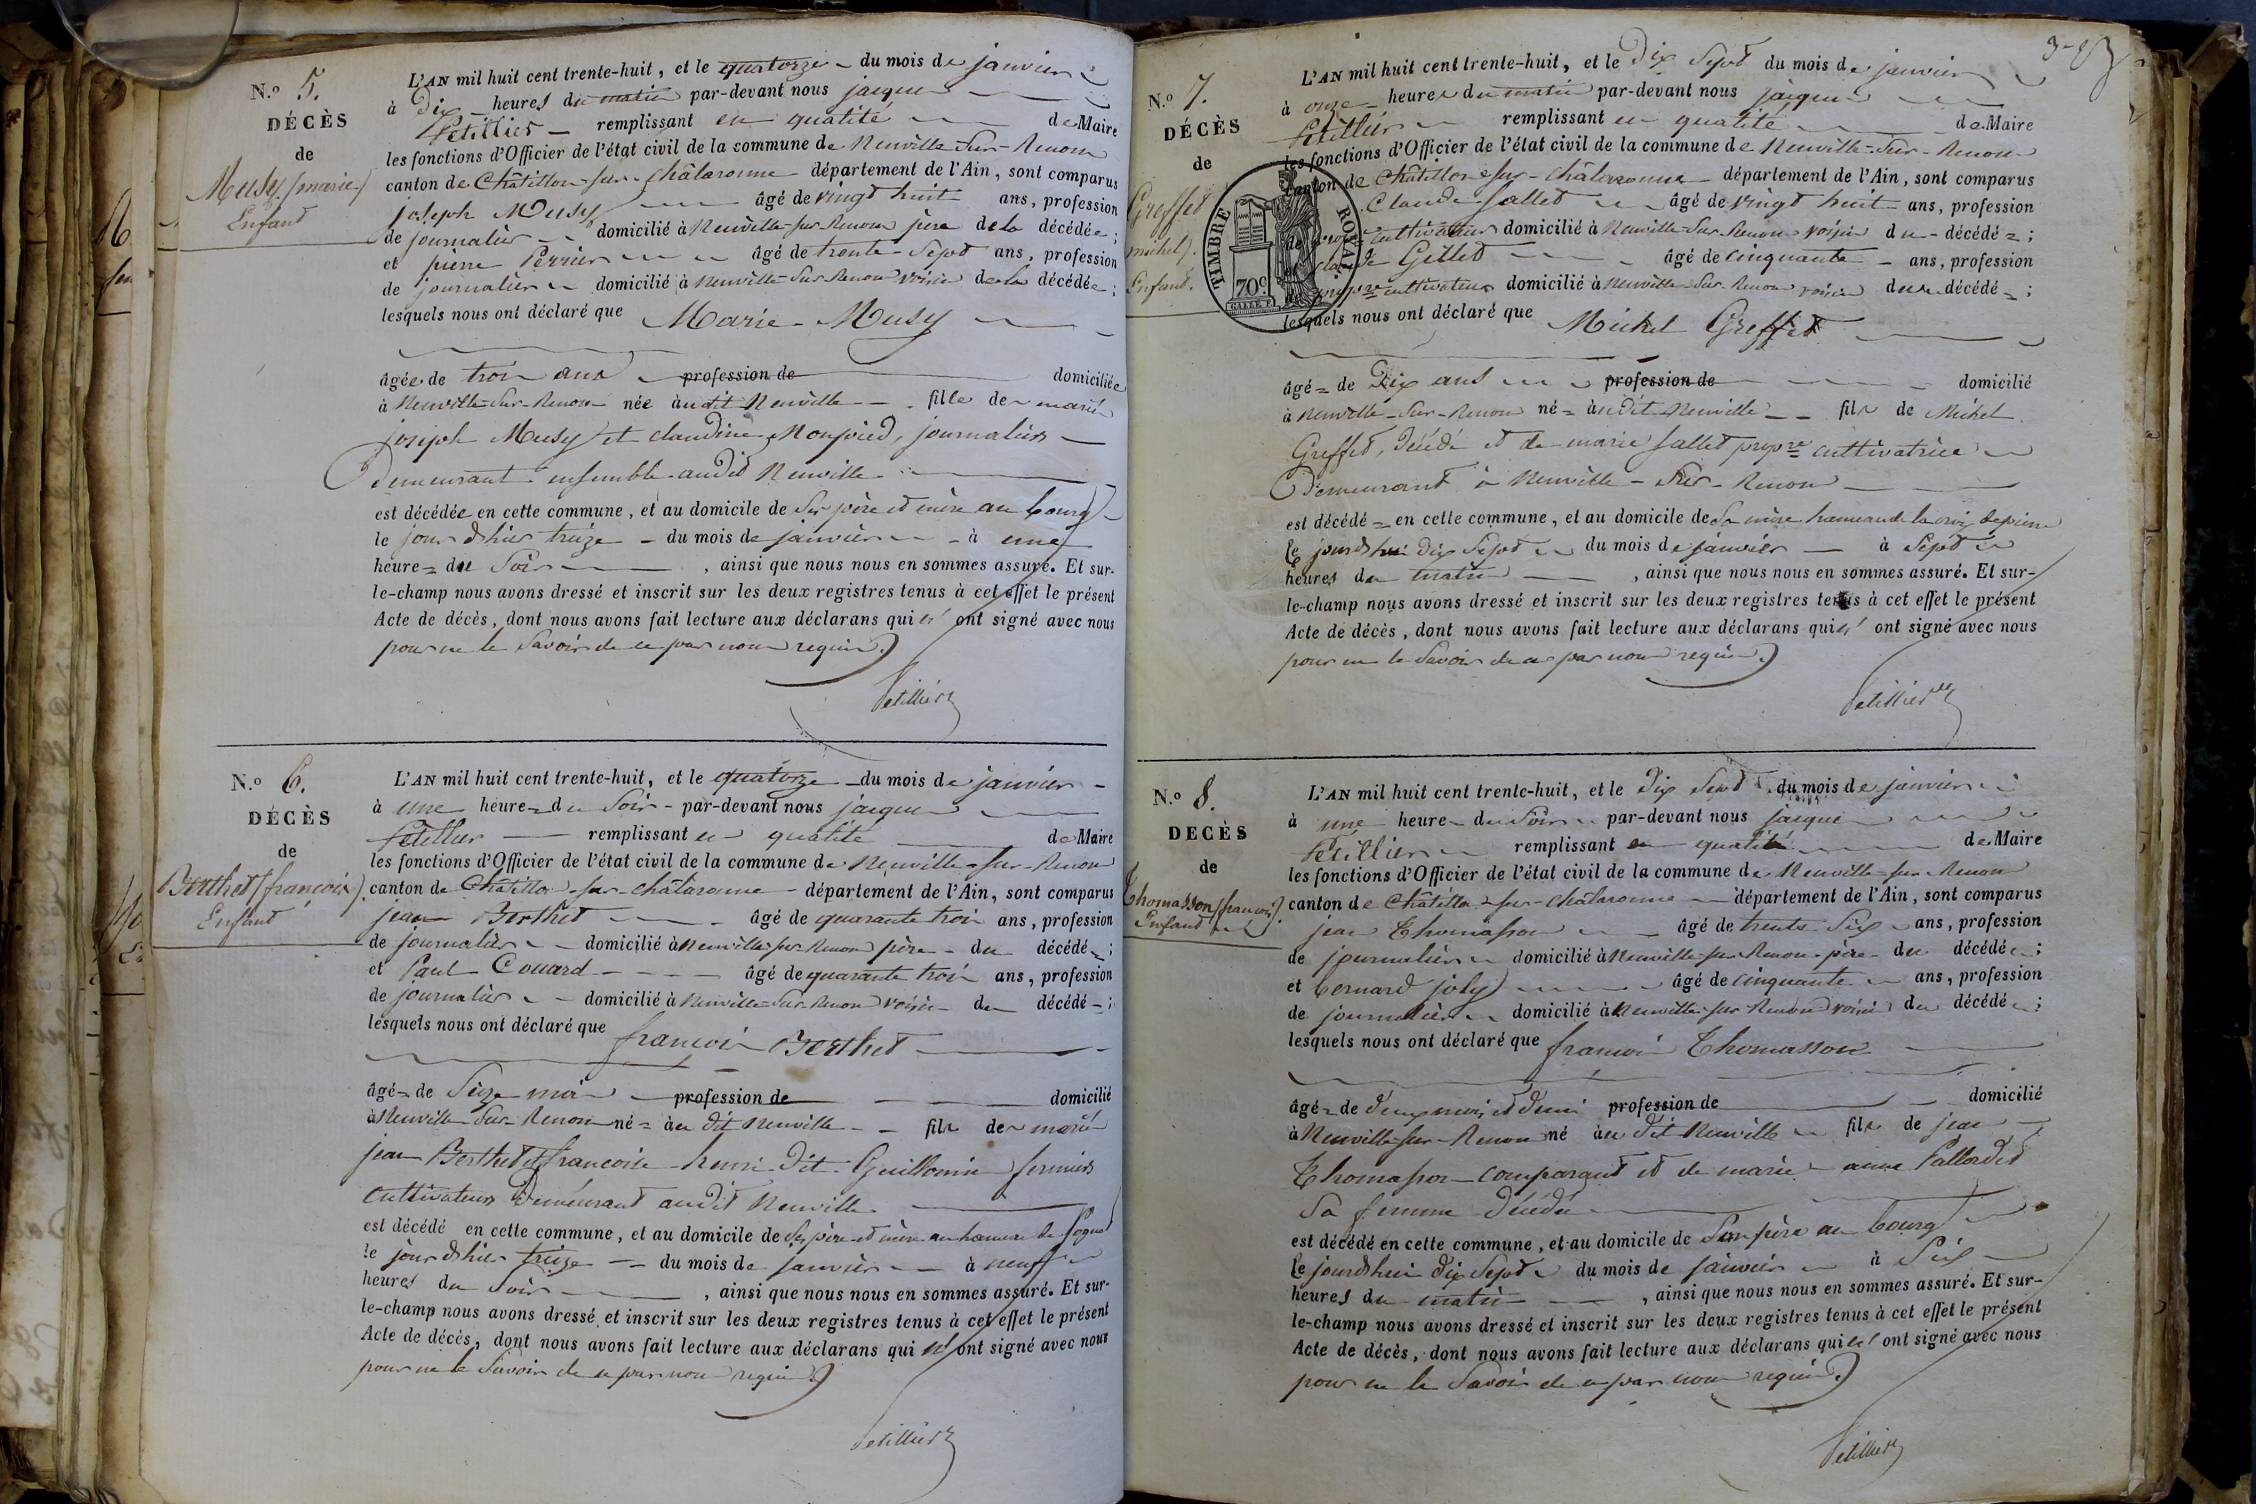 N.o 5.
DÉCÈS
de
Musy (marie)
Enfant
L'AN mil huit cent trente-huit, et le quatorze du mois de janvier
à Dix heures du matin par-devant nous jacques
Petillier remplissant en qualité de Maire
les fonctions d'Officier de l'état civil de la commune de Neuville-Sur-Renom
canton de Châtillon-sur-Châlaronne département de l'Ain, sont comparus
joseph Musy âgé de vingt huit ans, profession
de journalier domicilié à Neuville-sur Renom père de la décédée;
et pierre Perrier âgé de trente-Sept ans, profession
de journalier domicilié à Neuville-Sur Renom voisin de la décédée;
lesquels nous ont déclaré que Marie Musy
âgée de trois ans profession de domiciliée
à Neuville-Sur-Renom née audit Neuville fille de mariés
joseph Musy et claudine Monpied, journaliers
Demeurant ensemble audit Neuville
est décédée en cette commune, et au domicile de Ses père et mère au bourg
le jour d'hier treize du mois de janvier à une
heure du Soir, ainsi que nous nous en sommes assuré. Et sur-
le-champ nous avons dressé et inscrit sur les deux registres tenus à cet effet le présent
Acte de décès, dont nous avons fait lecture aux déclarans qui n' ont signé avec nous
pour ne le Savoir de ce par nous requis.
Petillier
N.o 6.
DÉCÈS
de
Berthet (françois).
Enfant
L'AN mil huit cent trente-huit, et le quatorze du mois de janvier
à une heure du Soir par-devant nous jacques
Petillier remplissant en qualité de Maire
les fonctions d'Officier de l'état civil de la commune de Neuville-sur-Renom
canton de Châtillon-sur-châlaronne département de l'Ain, sont comparus
jean Berthet âgé de quarante trois ans, profession
de journalier domicilié à Neuville-sur Renom père du décédé;
et Paul Couard âgé de quarante trois ans, profession
de journalier domicilié à Neuville-Sur Renom voisin du décédé;
lesquels nous ont déclaré que françois Berthet
âgé de Seize mois profession de domicilié
à Neuville-Sur-Renom né au dit Neuville fils de mariés
jean Berthet et françoise henri dit Guillomin fermiers
cultivateurs Demeurant audit Neuville
est décédé en cette commune, et au domicile de Ses père et mère au hameau de
le jour d'hier treize du mois de janvier à neuf
heures du Soir, ainsi que nous nous en sommes assuré. Et sur-
le-champ nous avons dressé et inscrit sur les deux registres tenus à cet effet le présent
Acte de décès, dont nous avons fait lecture aux déclarans qui n' ont signé avec nous
pour ne le Savoir de ce par nous requis.
Petillier
N.o 7.
DÉCÈS
de
Greffet
michel).
Enfant.
TIMBRE ROYAL
70c
L'AN mil huit cent trente-huit, et le Dix Sept du mois de janvier
à onze heures du matin par-devant nous jacques
Petillier remplissant en qualité de Maire
les fonctions d'Officier de l'état civil de la commune de Neuville-Sur-Renom
canton de Châtillon-sur-Châlaronne département de l'Ain, sont comparus
Claude Sallet âgé de vingt huit ans, profession
de cultivateur domicilié à Neuville-Sur-Renom voisin du décédé;
et claude Gillet âgé de cinquante ans, profession
de propre cultivateur domicilié à Neuville-Sur-Renom voisin du décédé;
lesquels nous ont déclaré que Michel Greffet
âgé de Dix ans profession de domicilié
à Neuville-Sur-Renom né audit Neuville fils de Michel
Greffet, Décédé et de marie Sallet propre cultivatrice
Demeurant à Neuville-Sur-Renom
est décédé en cette commune, et au domicile de Sa mère hameau de la croix
le jourd'hui dix Sept du mois de janvier à Sept
heures du matin, ainsi que nous nous en sommes assuré. Et sur-
le-champ nous avons dressé et inscrit sur les deux registres tenus à cet effet le présent
Acte de décès, dont nous avons fait lecture aux déclarans qui n' ont signé avec nous
pour ne le Savoir de ce par nous requis.
Petillier
N.o 8.
DECÈS
de
Thomasson (françois).
Enfant
L'AN mil huit cent trente-huit, et le Dix Sept du mois de janvier
à une heure du Soir par-devant nous jacques
Petillier remplissant en qualité de Maire
les fonctions d'Officier de l'état civil de la commune de Neuville-sur-Renom
canton de Châtillon-sur-Châlaronne département de l'Ain, sont comparus
jean Thomasson âgé de trente Six ans, profession
de journalier domicilié à Neuville-sur Renom père du décédé;
et bernard joly âgé de cinquante ans, profession
de journalier domicilié à Neuville-sur Renom voisin du décédé;
lesquels nous ont déclaré que françois Thomasson
âgé de deux mois et demi profession de domicilié
à Neuville-sur-Renom né au dit Neuville fils de jean
Thomasson comparant et de marie anne Pallordet
Sa femme Décédée
est décédé en cette commune, et au domicile de Son père au bourg
le jourd'hui dix Sept du mois de janvier à Six
heures du matin, ainsi que nous nous en sommes assuré. Et sur-
le-champ nous avons dressé et inscrit sur les deux registres tenus à cet effet le présent
Acte de décès, dont nous avons fait lecture aux déclarans qui n' ont signé avec nous
pour ne le Savoir de ce par nous requis.
Petillier